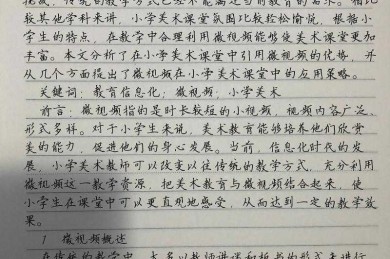 技展，传统的教学方式已经不能满足当前教育的需求。相比
较其他学科来讲，小学美术课堂氛围比较轻松愉悦，根据小
学生的特点，在教学中合理利用微视频能够使美术课堂更加
丰富。本文分析了在小学美术课堂中引用微视频的优势，并
从几个方面提出了微视频在小学美术课堂中的应用策略。
关键词：教育信息化；微视频；小学美术
前言：微视频指的是时长较短的小视频，视频内容广泛，
形式多种。对于小学生来说，美术教育能够培养他们欣赏
美的能力，促进他们的身心发展。当前，信息化时代的发
展，小学美术教师可以改变以往传统的教学方式，充分利用
微视频这一教学资源，把美术教育与微视频结合起来，使
小学生在课堂中可以更直观地感受，从而达到一定的教学效
果。
1 微视频概述
在传统的教学中，大多以教师讲课和板书的形式来进行